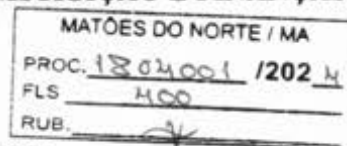 MATÕES DO NORTE / MA
PROC. 1804001 /2024
FLS 400
RUB.